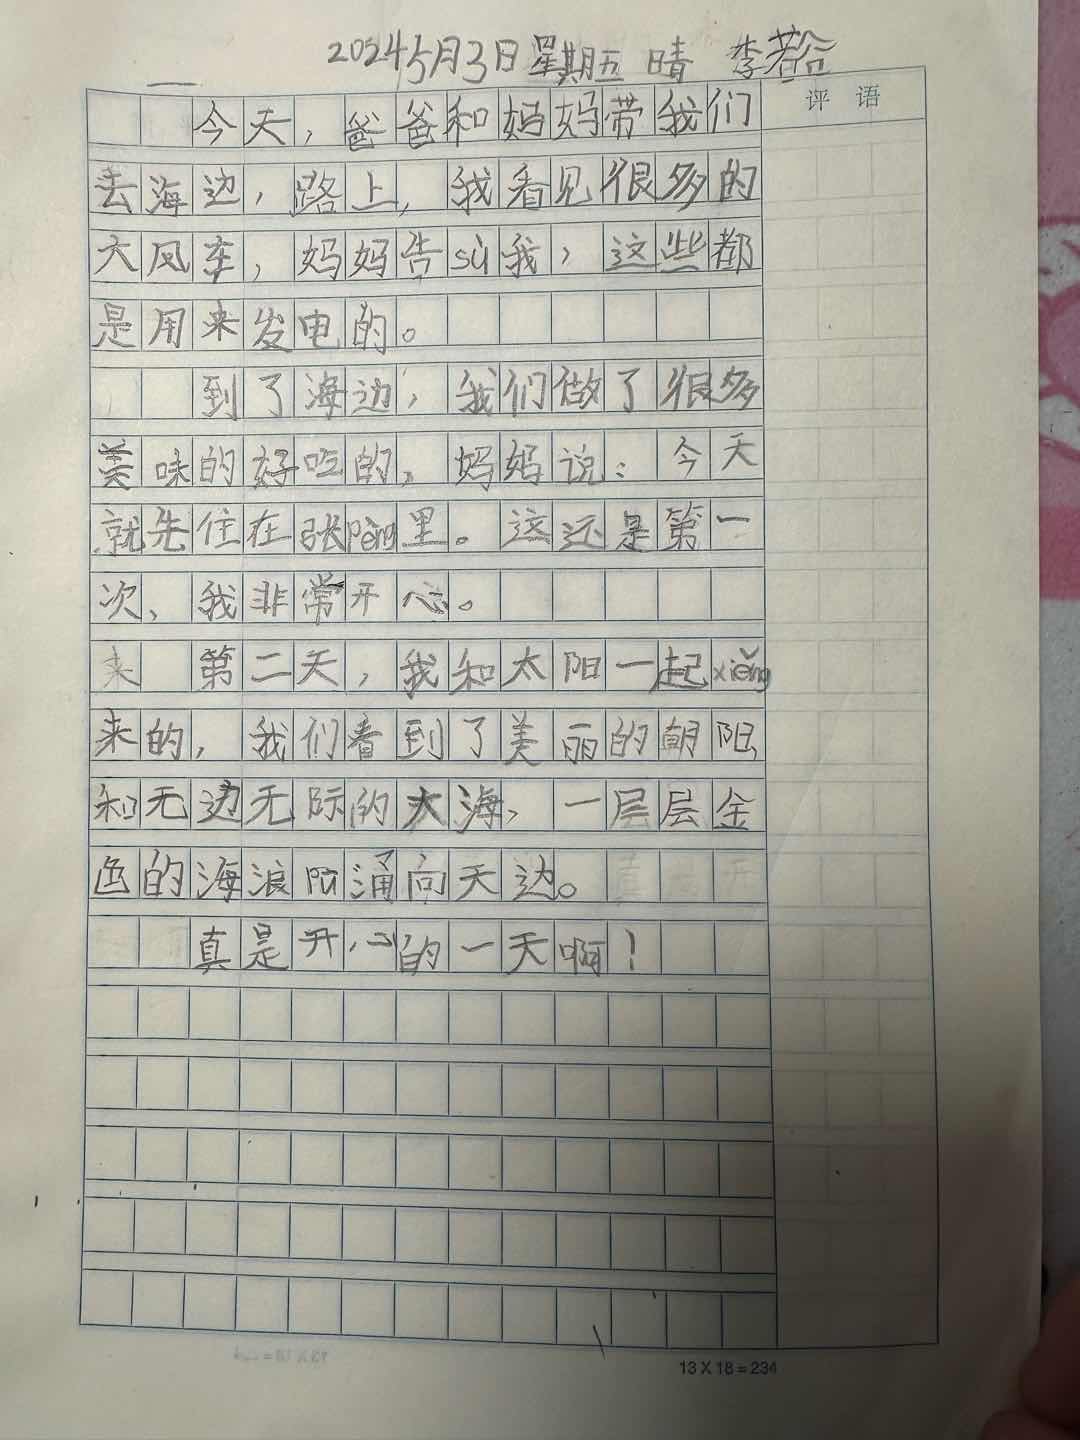 2024 5月3日 星期五 晴 李若谷
评语
今天，爸爸和妈妈带我们
去海边，路上，我看见很多的
大风车，妈妈告sù我，这些都
是用来发电的。
到了海边，我们做了很多
美味的好吃的，妈妈说：今天
就先住在张pèng里。这还是第一
次、我非常开心。
第二天，我和太阳一起xiěng
来的，我们看到了美丽的朝阳
和无边无际的大海，一层层金
色的海浪涌向天边。
真是开心的一天啊！
13×18=234